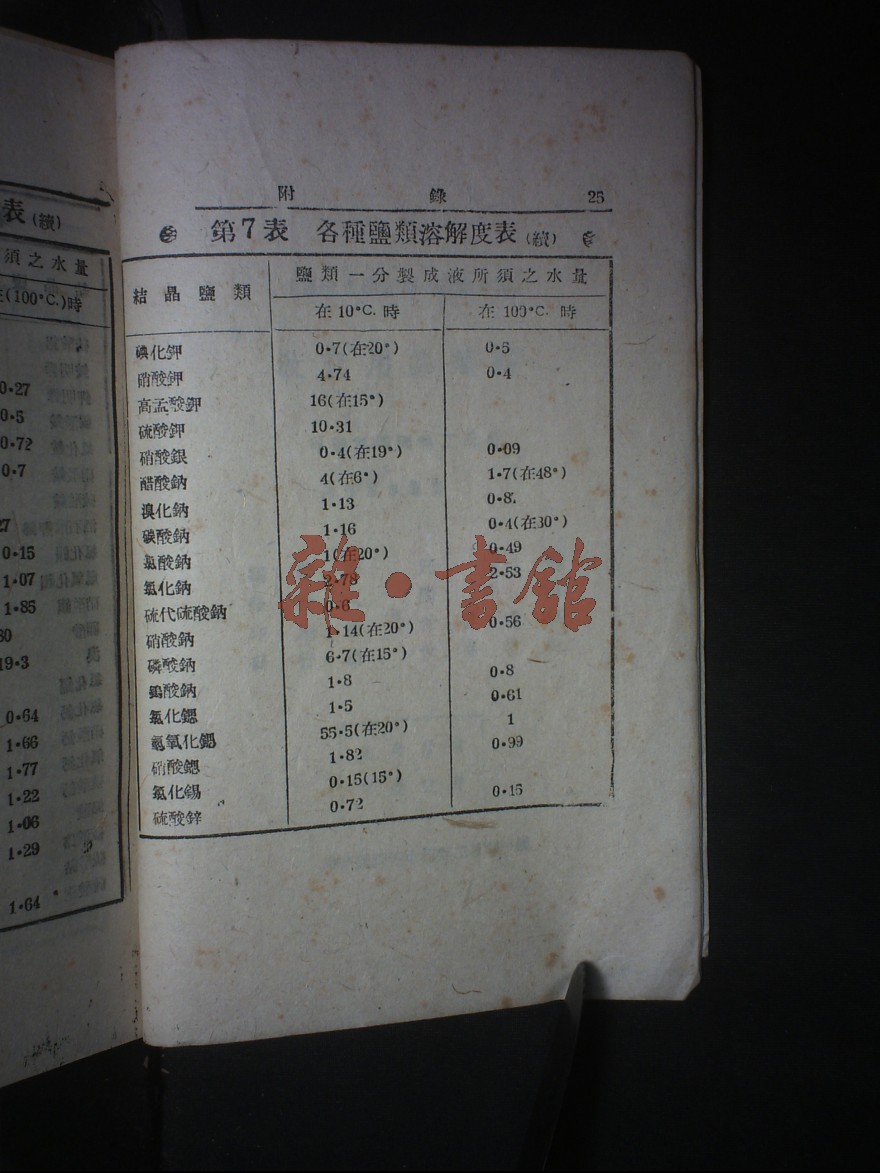 表 (續)
須之水量
(100°C.)時
0·27
0·5
0·72
0·7
27
0·15
1·07
1·85
80
19·3
0·64
1·66
1·77
1·22
1·06
1·29
1·64
附 錄 25
第7表 各種鹽類溶解度表(續)
結晶鹽類 鹽類一分製成液所須之水量
在10°C.時 在100°C.時
碘化鉀 0·7(在20°) 0·5
硝酸鉀 4·74 0·4
高孟酸鉀 16(在15°)
硫酸鉀 10·31
硝酸銀 0·4(在19°) 0·09
醋酸鈉 4(在6°) 1·7(在48°)
溴化鈉 1·13 0·8
碳酸鈉 1·16 0·4(在30°)
氯酸鈉 1(在20°) 0·49
氯化鈉 2·78 2·53
硫代硫酸鈉 0·6
硝酸鈉 1·14(在20°) 0·56
磷酸鈉 6·7(在15°)
鎢酸鈉 1·8 0·8
氯化鍶 1·5 0·61
氫氧化鍶 55·5(在20°) 1
硝酸鍶 1·82 0·99
氯化錫 0·15(15°)
硫酸鋅 0·72 0·15
雜·書館